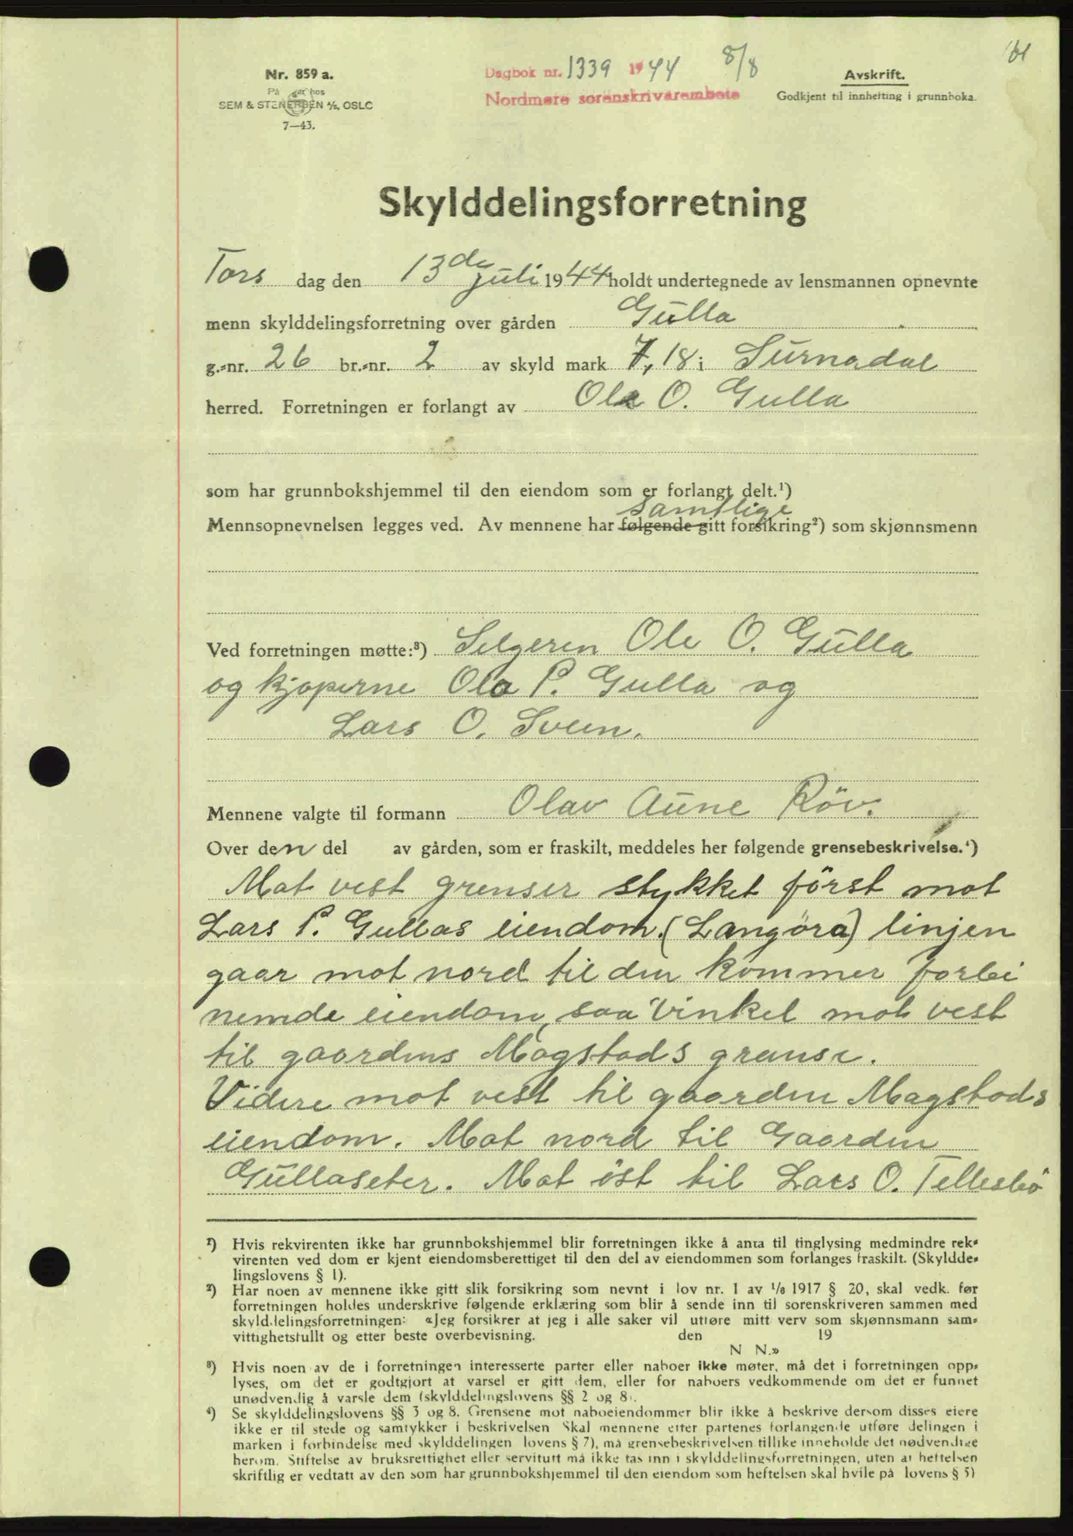 161
Nr. 859 a.
På lager hos
SEM & STENERSEN A/S, OSLO
7—43.
Dagbok nr. 1339 1944 8/8
Nordmøre sorenskriverembete
Avskrift.
Godkjent til innhefting i grunnboka.
Skylddelingsforretning
Tors dag den 13de juli 1944 holdt undertegnede av lensmannen opnevnte
menn skylddelingsforretning over gården Gulla
g.-nr. 26 br.-nr. 2 av skyld mark 7,18 i Surnadal
herred. Forretningen er forlangt av Ole O. Gulla
som har grunnbokshjemmel til den eiendom som er forlangt delt.¹)
samtlige
Mennsopnevnelsen legges ved. Av mennene har følgende gitt forsikring²) som skjønnsmenn
Ved forretningen møtte:³) Selgeren Ole O. Gulla
og kjøperne Ola P. Gulla og
Lars O. Sveen.
Mennene valgte til formann Olav Aune Röv.
Over den del av gården, som er fraskilt, meddeles her følgende grensebeskrivelse.⁴)
Mot vest grenser stykket först mot
Lars P. Gullas eiendom. (Langöra) linjen
gaar mot nord til den kommer forbi
nemde eiendom, saa vinkel mot vest
til gaardens Magstads grense.
Videre mot vest til gaarden Magstads
eiendom. Mot nord til Gaarden
Gullaseter. Mot öst til Lars O. Tellesbö
¹) Hvis rekvirenten ikke har grunnbokshjemmel blir forretningen ikke å anta til tinglysing medmindre rek-
virenten ved dom er kjent eiendomsberettiget til den del av eiendommen som forlanges fraskilt. (Skyldde-
lingslovens § 1).
²) Har noen av mennene ikke gitt slik forsikring som nevnt i lov nr. 1 av 1/6 1917 § 20, skal vedk. før
forretningen holdes underskrive følgende erklæring som blir å sende inn til sorenskriveren sammen med
skylddelingsforretningen: «Jeg forsikrer at jeg i alle saker vil utføre mitt verv som skjønnsmann sam-
vittighetsfullt og etter beste overbevisning. den 19
N N.»
³) Hvis noen av de i forretningen interesserte parter eller naboer ikke møter, må det i forretningen opp-
lyses, om det er godtgjort at varsel er gitt dem, eller for naboers vedkommende om det er funnet
unødvendig å varsle dem (skylddelingslovens §§ 2 og 8).
⁴) Se skylddelingslovens §§ 3 og 8. Grensene mot naboeiendommer blir ikke å beskrive dersom disses eiere
ikke er til stede og samtykker i beskrivelsen Skal mennene etter partenes forlangende utføre delingen i
marken i forbindelse med skylddelingen lovens § 7), må grensebeskrivelsen tillike inneholde det nødvendige
herom. Stiftelse av bruksrettighet eller servitutt må ikke tas inn i skylddelingsforretningen, uten at heftelsen
skriftlig er vedtatt av den som har grunnbokshjemmel til den eiendom som heftelsen skal hvile på lovens § 5)